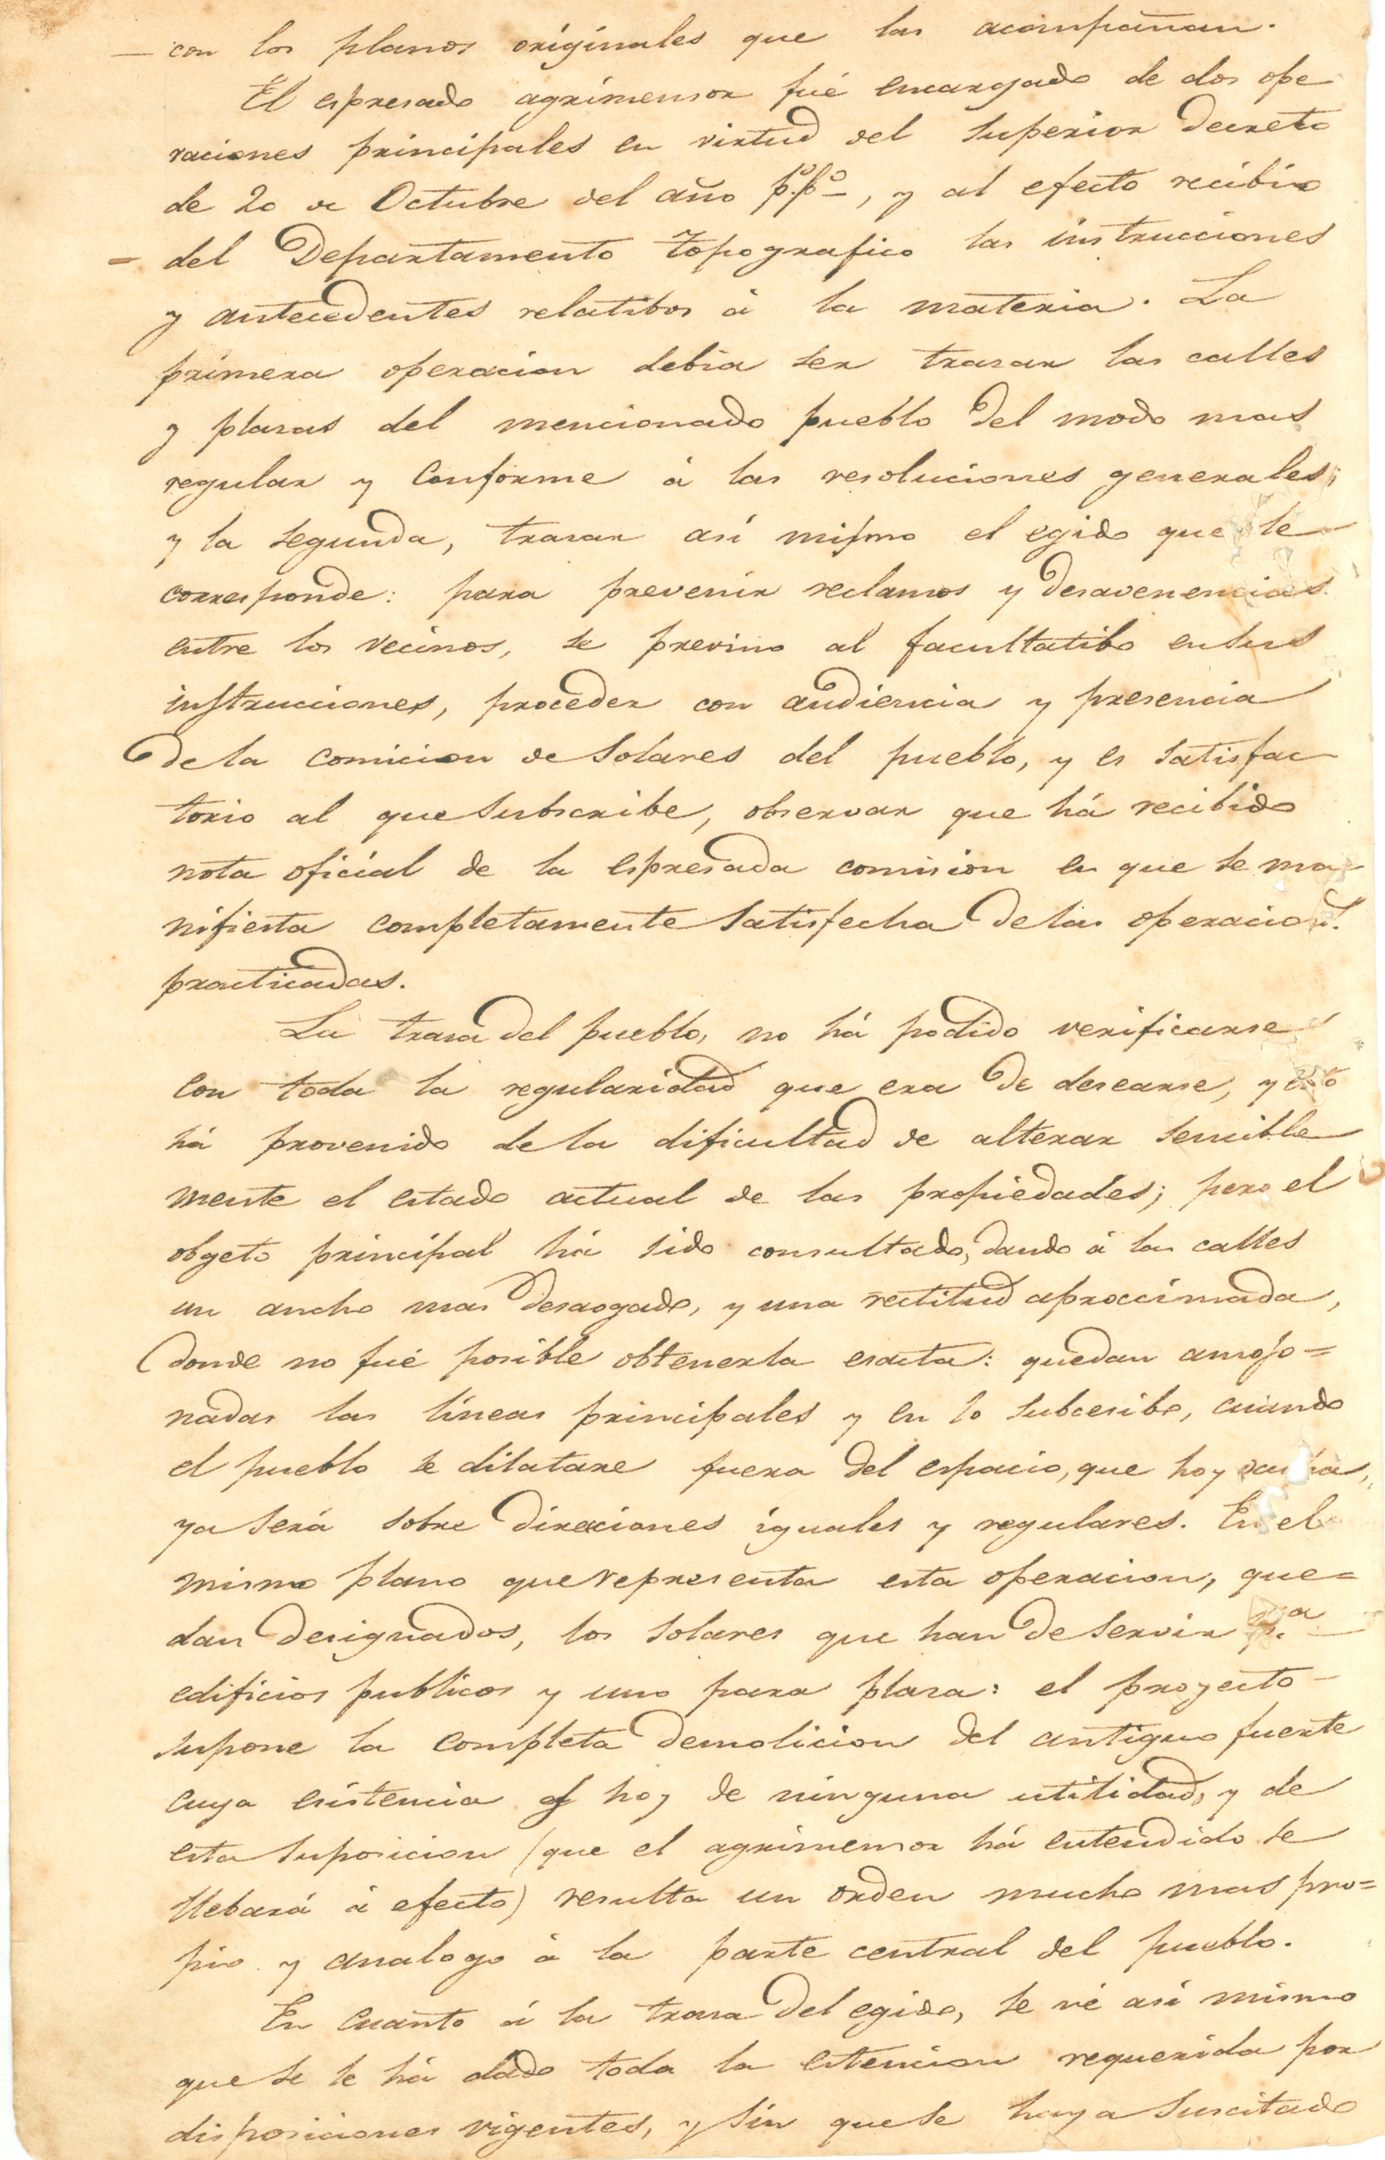 con los planos originales que las acompañan.
El espresado agrimensor fué encargado de dos ope
raciones principales en virtud del superior Decreto
de 20 de Octubre del año p.º p.º, y al efecto recibio
del Departamento topografico las instrucciones
y antecedentes relatibos á la materia. La
primera operacion debia ser trasar las calles
y plasas del mencionado pueblo del modo mas
regular y conforme á las resoluciones generales;
y la segunda, trasar así mismo el egido que le
corresponde: para prevenir reclamos y desavenencias
entre los vecinos, se previno al facultatibo en sus
instrucciones, proceder con audiencia y presencia
de la comicion de Solares del pueblo, y es satisfac
torio al que subscribe, observar que há recibido
nota oficial de la espresada comision en que se ma
nifiesta completamente satisfecha de las operacion.s
practicadas.
La trasa del pueblo, no há podido verificarse
con toda la regularidad que era de desearse, y esto
há provenido de la dificultad de alterar sencible
mente el estado actual de las propiedades; pero el
obgeto principal há sido consultado, dando á las calles
un ancho mas desaogado, y una rectitud aproccimada,
donde no fué posible obtenerla esacta: quedan amojo=
nadas las líneas principales y en lo subcesibo, cuando
el pueblo se dilatare fuera del espacio, que hoy ocupa,
ya será sobre direcciones iguales y regulares. En el
mismo plano que representa esta operacion, que=
dan designados, los solares que han de servir p.a
edificios publicos y uno para plasa: el proyecto
supone la completa demolicion del antiguo fuerte
cuya esistencia es hoy de ninguna utilidad, y de
esta suposicion (que el agrimensor há entendido se
llebará á efecto) resulta un orden mucho mas pro=
pio y analogo á la parte central del pueblo.
En cuanto á la trasa del egido, se vé así mismo
que se le há dado toda la estencion requerida por
disposiciones vigentes, y sin que se haya suscitado